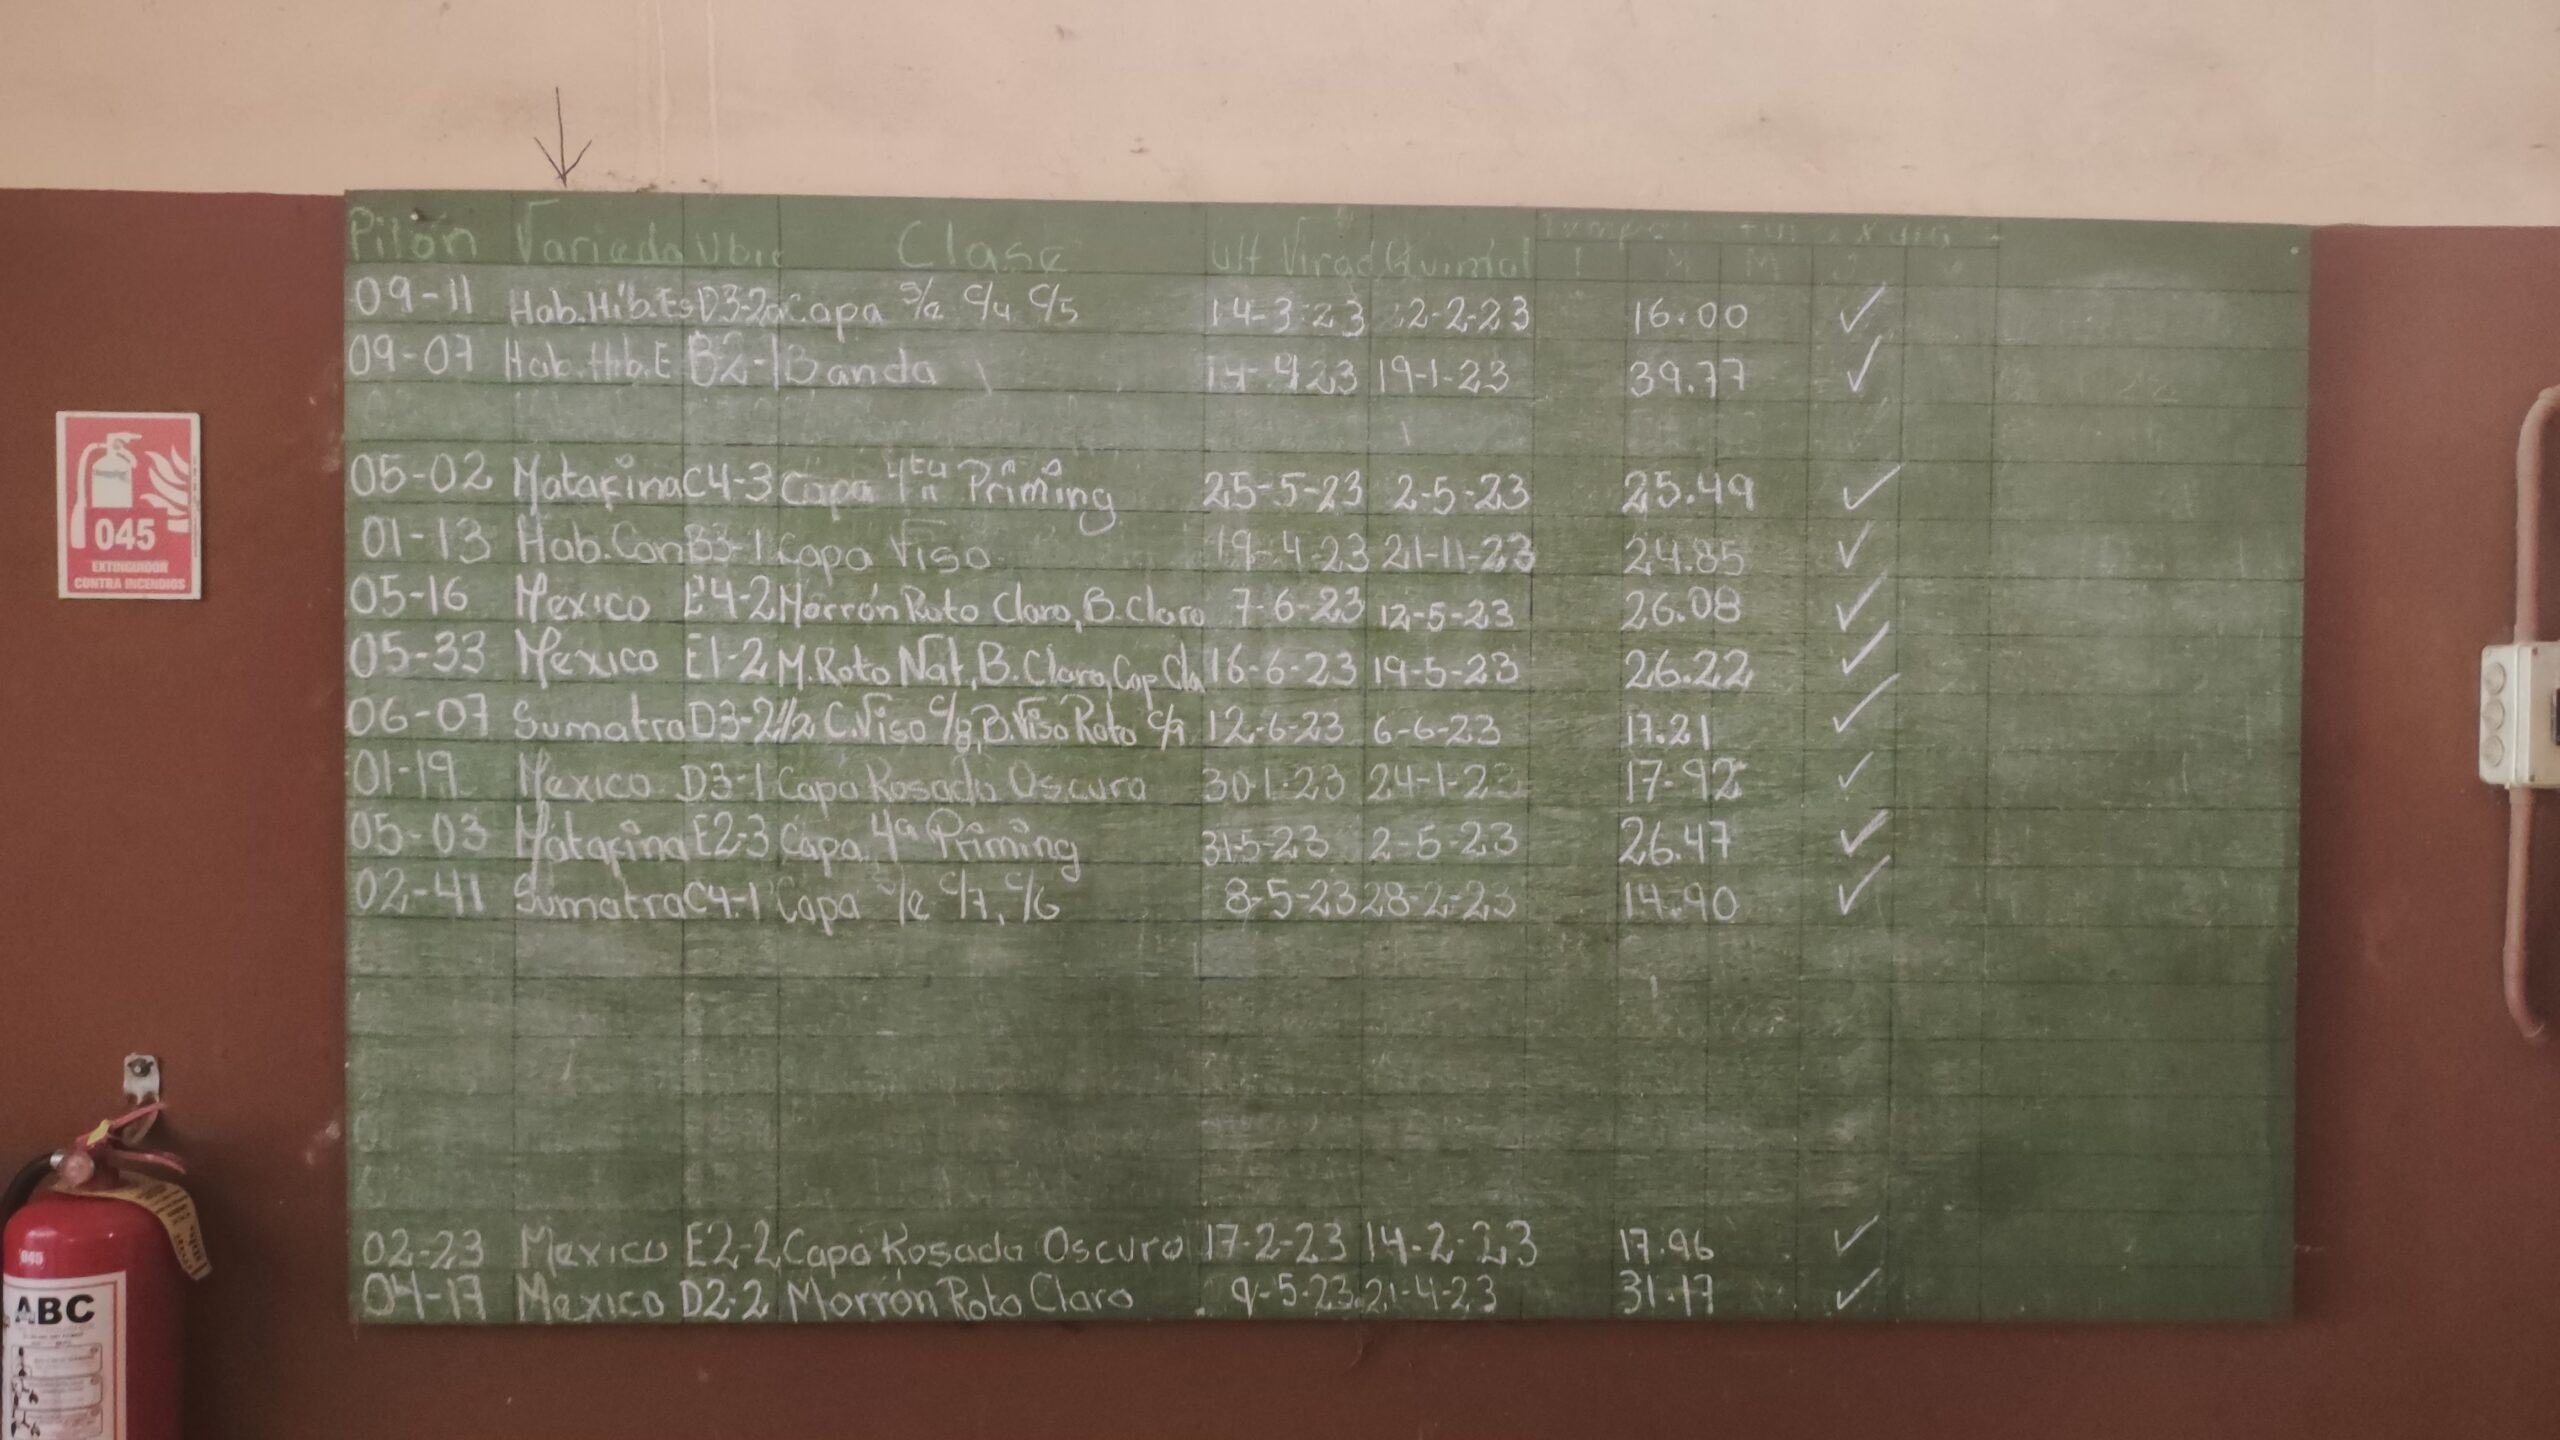 Pilón Varieda Ubic Clase Ult Virad Quintal
L M M J V
09-11 Hab.Hib.Es D3-2a Capa S/e C/4 C/5 14-3-23 2-2-23 16.00 ✓
09-07 Hab.Hib.E B2-1 Banda 14-4-23 19-1-23 39.77 ✓
05-02 Matafina C4-3 Capa 4ta Priming 25-5-23 2-5-23 25.49 ✓
01-13 Hab.Con B3-1 Capa Viso 19-4-23 21-11-23 24.85 ✓
05-16 Mexico E4-2 Morrón Roto Claro, B. Claro 7-6-23 12-5-23 26.08 ✓
05-33 Mexico E1-2 M.Roto Nat, B. Claro, Cap Cla 16-6-23 19-5-23 26.22 ✓
06-07 Sumatra D3-2 1/2 C.Viso C/8, B.Viso Roto C/9 12-6-23 6-6-23 17.21 ✓
01-19 Mexico D3-1 Capa Rosado Oscuro 30-1-23 24-1-23 17.92 ✓
05-03 Matafina E2-3 Capa 4a Priming 31-5-23 2-5-23 26.47 ✓
02-41 Sumatra C4-1 Capa S/e C/7, C/6 8-5-23 28-2-23 14.90 ✓
02-23 Mexico E2-2 Capa Rosado Oscuro 17-2-23 14-2-23 17.96 ✓
04-17 Mexico D2-2 Morrón Roto Claro 9-5-23 21-4-23 31.17 ✓
045
EXTINGUIDOR
CONTRA INCENDIOS
045
ABC